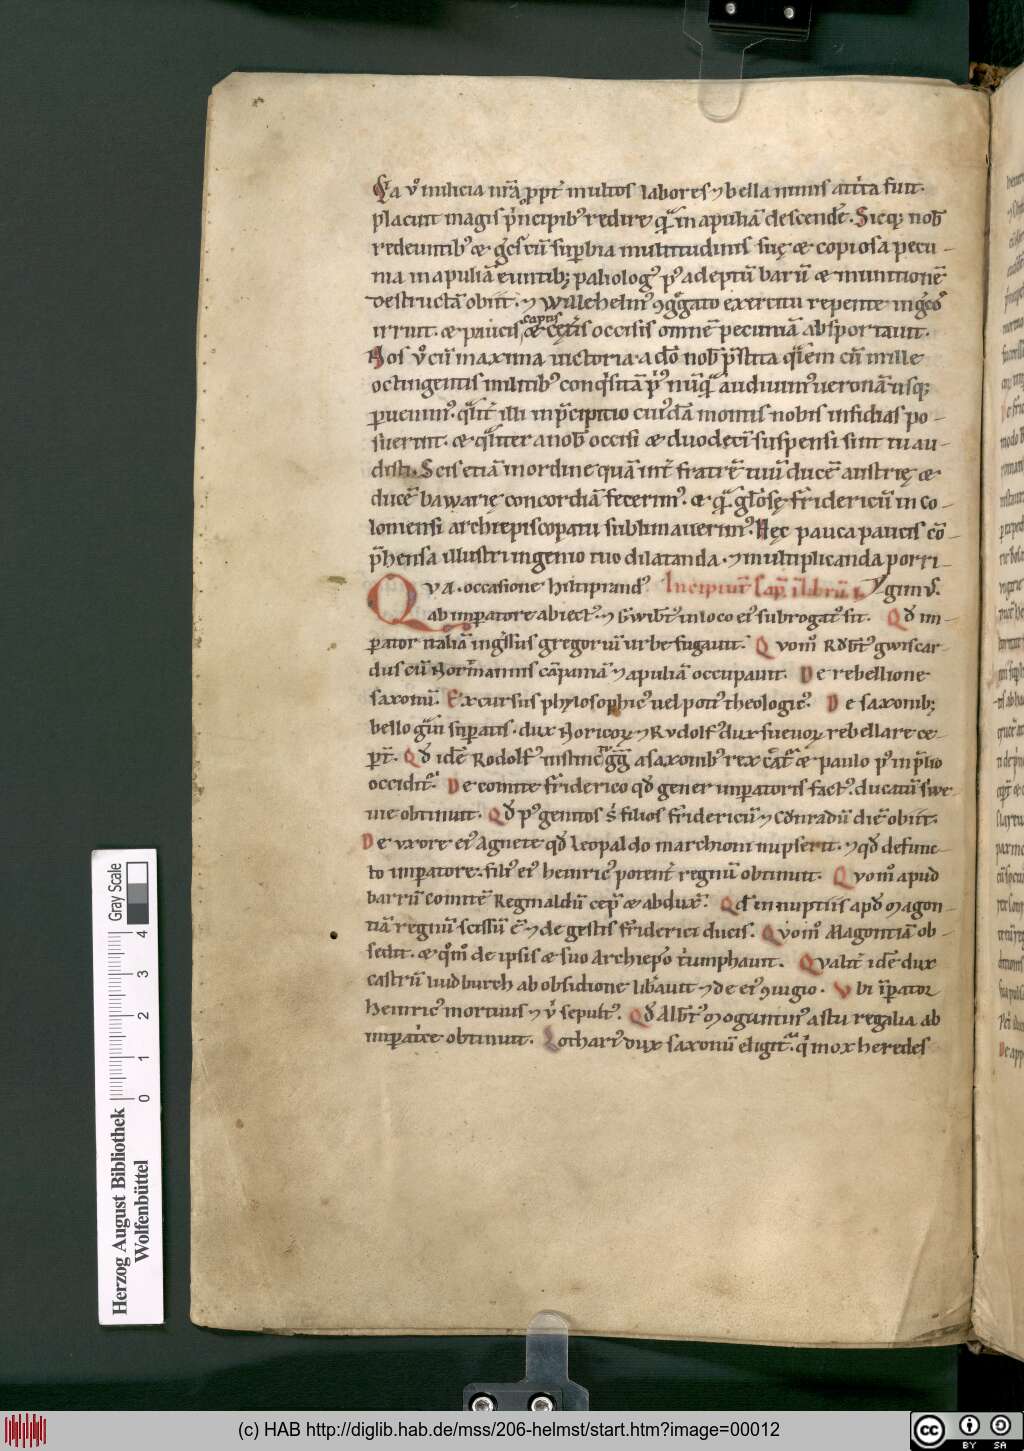 Ea v̓o milicia nr̃a ppt̓ multos labores ⁊ bella nimis att̓ta fuit.
placuit magis p̓ncipib; redire q̃ in apuliã descendẽ. Sicq; nob̓
redeuntib; ⁊ g̓cis cũ sup̱bia multitudinis suę ⁊ copiosa pecu-
nia in apuliã euntib; paliolog' p' adeptũ barũ ⁊ munitionẽ
destructã obiit. ⁊ Willehelm' ꝯgg̃ato exercitu repente in g̃cos
irruit. ⁊ paucis captis, ⁊ cęt̓is occisis omnẽ pecuniã absportauit.
Nos v̓o cũ maxima uictoria a dõ nob̓ p̃stita q̃lem cũ mille
octingentis militib' conq̓sitã p̓' nũq̃ audiuim' ueronã usq;
p̱uenim'. q̃lit̓ illi in p̃cipitio cui'dã montis nobis insidias po-
suerint. ⁊ q̃liter a nob̓ occisi ⁊ duodecĩ suspensi sint tu au-
disti. Scis etiã in ordine quã int̓ fratrẽ tuũ ducẽ austrię ⁊
ducẽ bawarię concordiã fecerim'. ⁊ q̃ gl̃osę fr̓idericũ in co-
loniensi archiepiscopatu sublimauerim'. Hęc pauca paucis cõ-
p̃hensa illustri ingenio tuo dilatanda. ⁊ multiplicanda porri-
Qva occasione hiltiprand' Incipiunt Cap̃. iͥ libru I. gim'.
ab imp̱atore abiect'. ⁊ Gwib̓t' in loco ei' subrogat' sit. Qd̓ im-
p̱ator italiã ings̃sus gregoriũ urbe fugauit. Qvom̊ Rod̓b̓t' gwiscar-
dus cũ Nor̓mannis cãpaniã ⁊ apuliã occupauit. De rebellione
saxonũ. Excursus phylosophic' uel poti' theologic'. De saxonib;
bello g̃ui sup̱atis. dux Noricoꝝ ⁊ Rvdolf' dux sueuoꝝ rebellare ce-
p̱t̓. Qd̓ idẽ Rodolf' instinc' gg̃ a saxonib' rex c̃at᷑ ⁊ paulo p' in p̃lio
occidit᷑. De comite fr̓iderico qd̓ gener imp̱atoris fact'. ducatũ swe-
uie obtinuit. Qd̓ p' genitos s̓ filios fr̓idericũ ⁊ Cõnradũ diẽ obiit.
De uxore ei' Agnete qd̓ leopaldo marchioni nupserit. ⁊ qd̓ defunc-
to imp̱atore. fili' ei' heinric' potent̓ regnũ obtinuit. Qvom̊ apud
barrũ comitẽ Reginaldũ cepit ⁊ abdux̓. Qd̓ in nuptiis apd̓ Magon-
tiã regnũ scissũ ẽ ⁊ de gestis fr̓iderici ducis. Qvom̊ Magontiã ob-
sedit. ⁊ q̊m̊ de ipsis ⁊ suo Archiepo t̓umphauit. Qvalit̓ idẽ dux
castrũ limburch ab obsidione lib̓auit ⁊ de ei' ꝯiugio. Vbi ĩp̱ator
heinric' mortuus ⁊ v̓ sepult'. Qd̓ Alb̓t' Moguntin' astu regalia ab
imp̱at̓ce obtinuit. Lothari' dux saxonũ eligit᷑. q̓ mox heredes
Herzog August Bibliothek
Wolfenbüttel
Gray Scale
0 1 2 3 4
(c) HAB http://diglib.hab.de/mss/206-helmst/start.htm?image=00012
cc BY SA